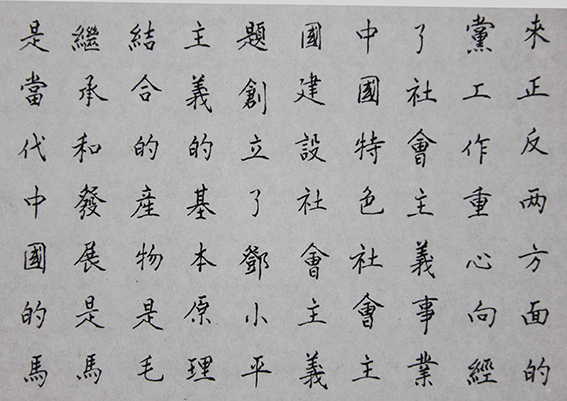 來正反两方面的
黨工作重心向經
了社會主義事業
中國特色社會主
國建設社會主義
題創立了鄧小平
主義的基本原理
結合的産物是毛
繼承和發展是馬
是當代中國的馬